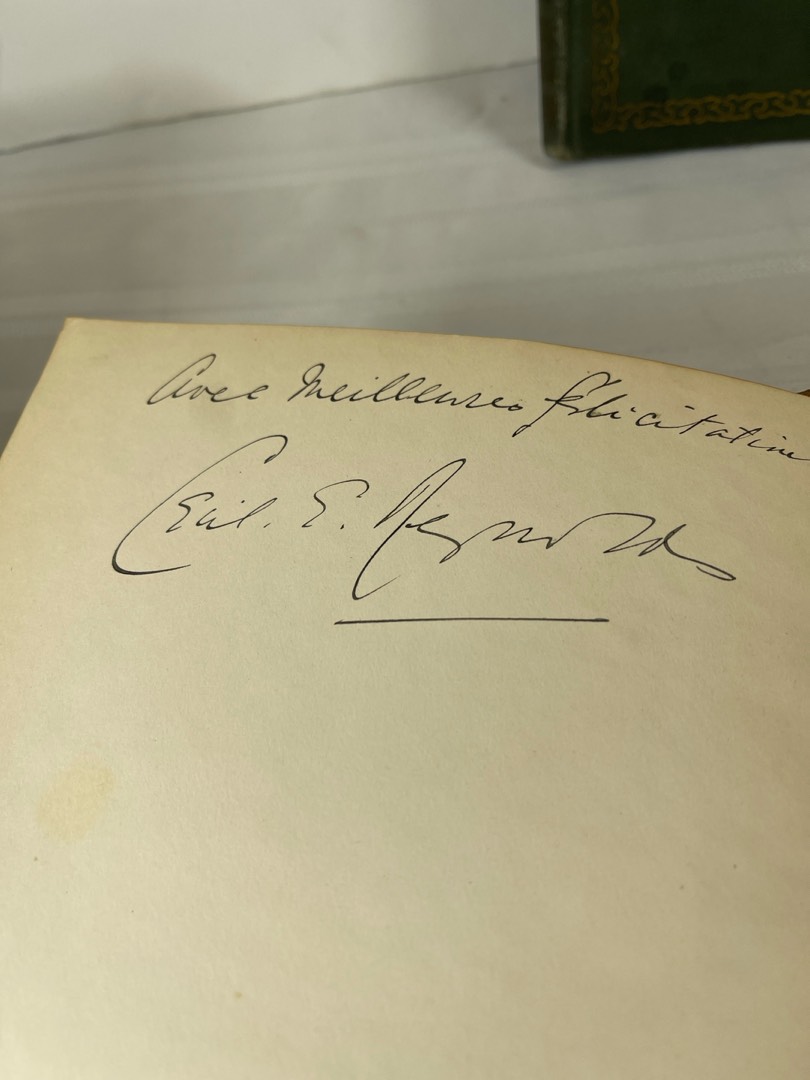 Avec Meilleures félicitation
Cecil. E. Reynolds